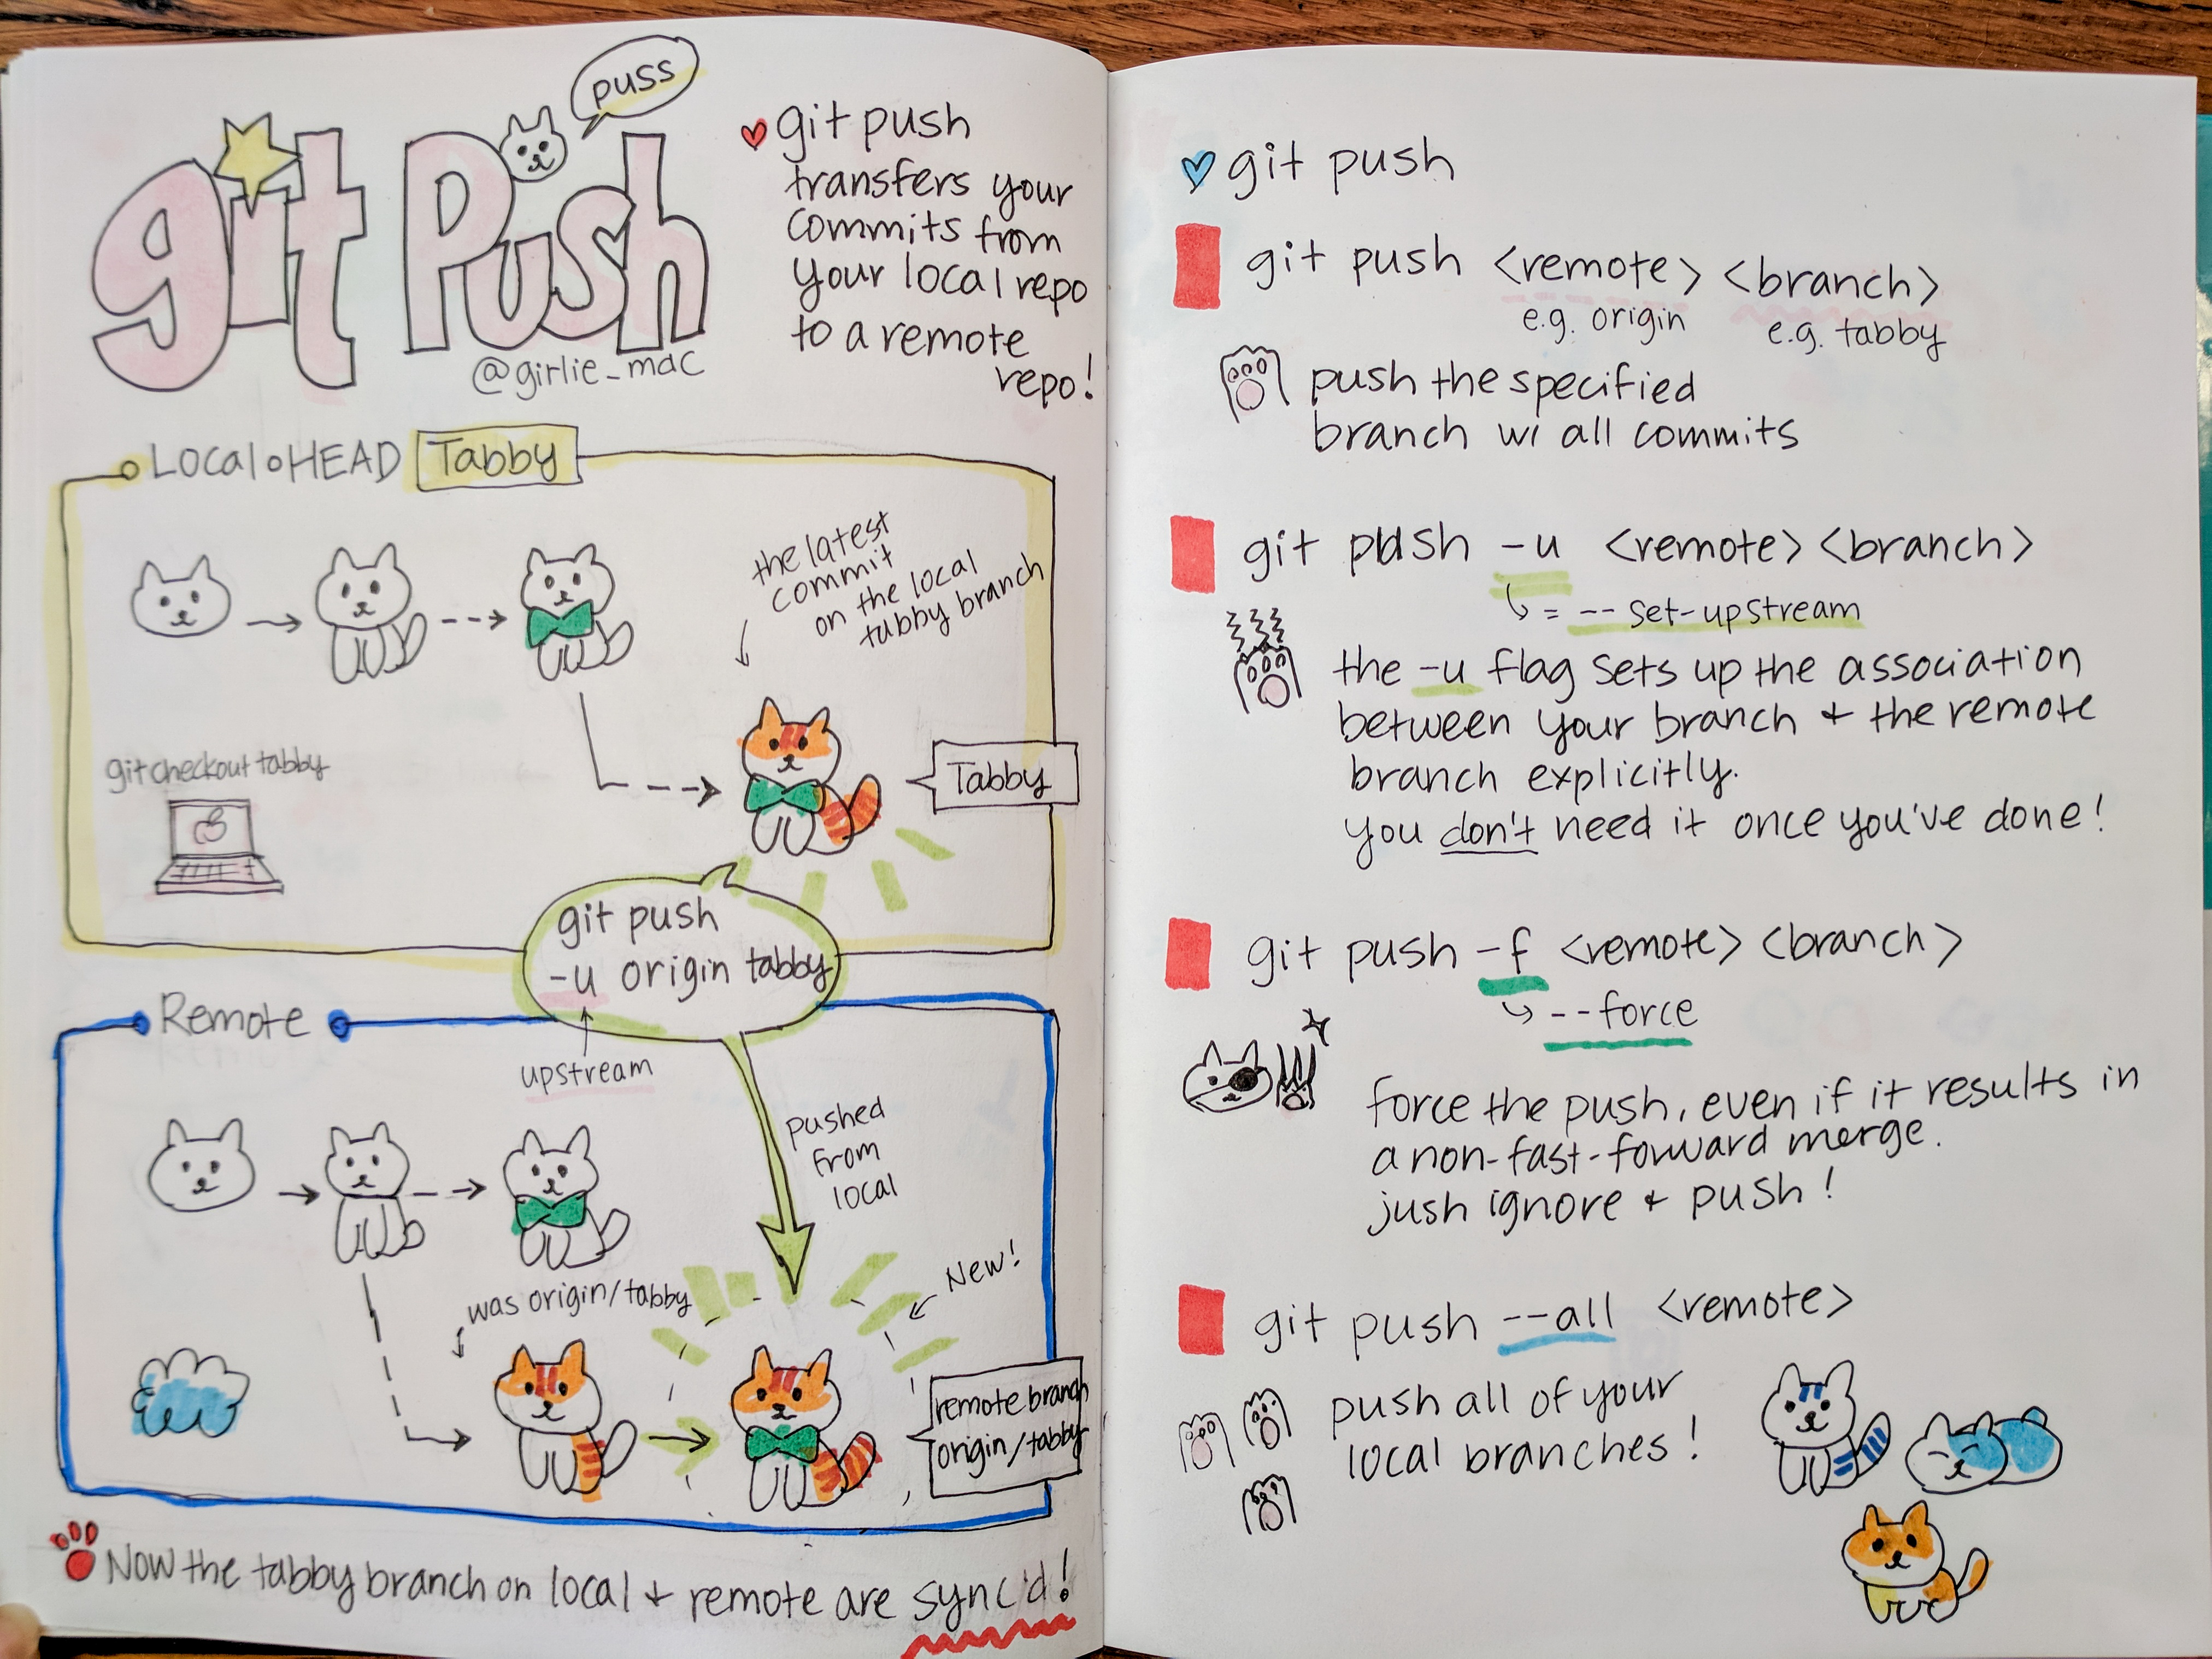 puss
git Push
@girlie_mac
git push
transfers your
commits from
your local repo
to a remote
repo!
Local HEAD Tabby
the latest
commit
on the local
tabby branch
git checkout tabby
Tabby
git push
-u origin tabby
upstream
Remote
pushed
from
local
New!
was origin/tabby
remote branch
origin/tabby
Now the tabby branch on local + remote are sync'd!
git push
git push <remote> <branch>
e.g. origin
e.g. tabby
push the specified
branch w/ all commits
git push -u <remote> <branch>
= --set-upstream
the -u flag sets up the association
between your branch + the remote
branch explicitly.
you don't need it once you've done!
git push -f <remote> <branch>
--force
force the push, even if it results in
a non-fast-forward merge.
jush ignore + push!
git push --all <remote>
push all of your
local branches!